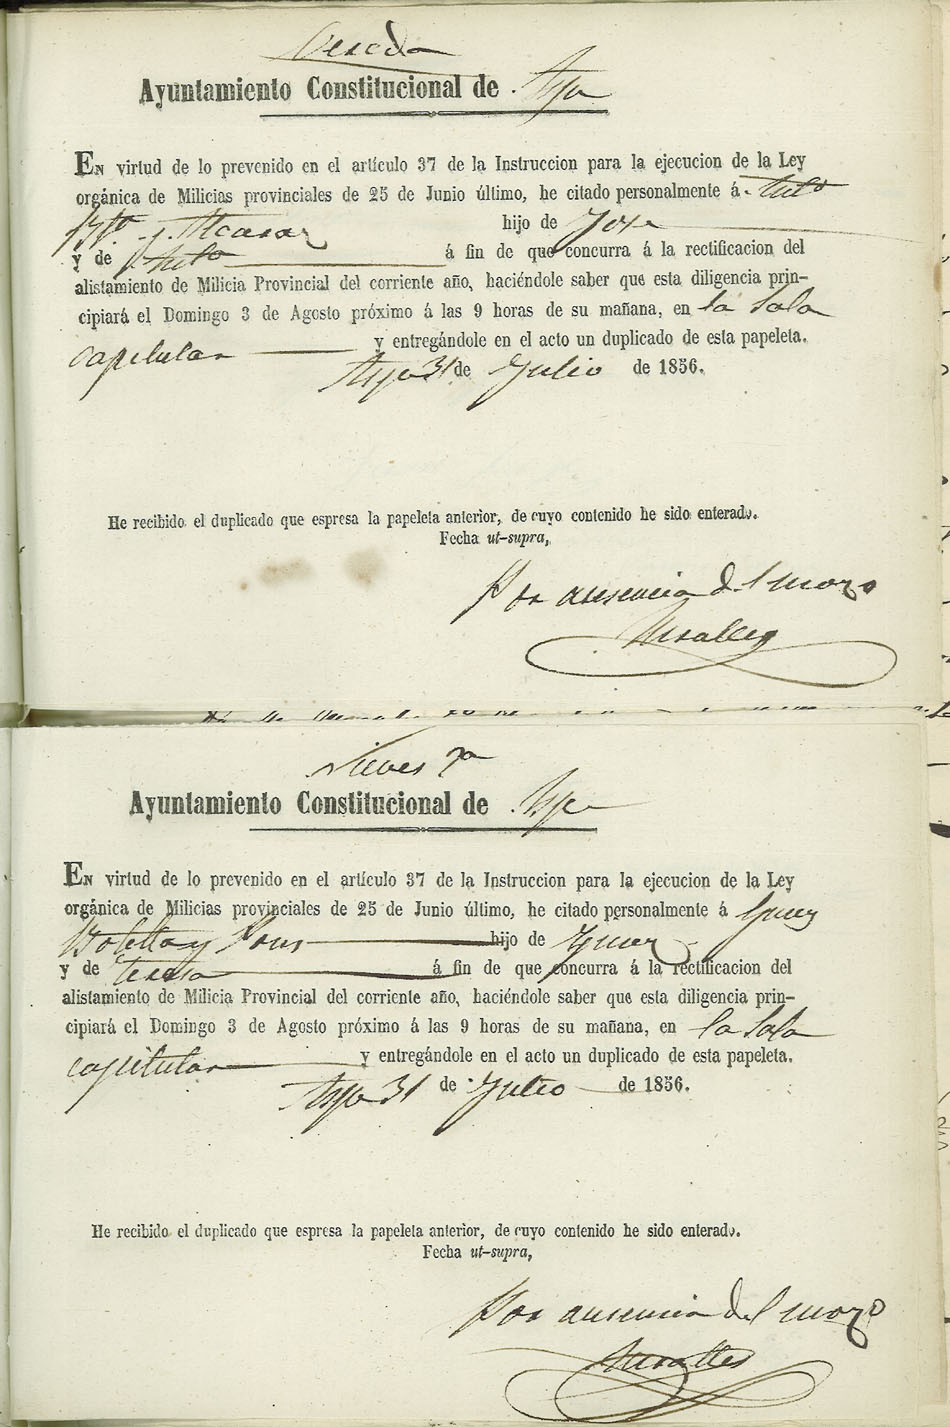 Vereda
Ayuntamiento Constitucional de Aspe
EN virtud de lo prevenido en el artículo 37 de la Instruccion para la ejecucion de la Ley
orgánica de Milicias provinciales de 25 de Junio último, he citado personalmente á
y Alcaraz hijo de Jose
y de á fin de que concurra á la rectificacion del
alistamiento de Milicia Provincial del corriente año, haciéndole saber que esta diligencia prin-
cipiará el Domingo 3 de Agosto próximo á las 9 horas de su mañana, en la Sala
capitular y entregándole en el acto un duplicado de esta papeleta.
Aspe 31 de Julio de 1856.
He recibido el duplicado que espresa la papeleta anterior, de cuyo contenido he sido enterado.
Fecha ut-supra,
Por ausencia del mozo
Miralles
Nieves
Ayuntamiento Constitucional de Aspe
EN virtud de lo prevenido en el artículo 37 de la Instruccion para la ejecucion de la Ley
orgánica de Milicias provinciales de 25 de Junio último, he citado personalmente á
Botella y Pons hijo de
y de Teresa á fin de que concurra á la rectificacion del
alistamiento de Milicia Provincial del corriente año, haciéndole saber que esta diligencia prin-
cipiará el Domingo 3 de Agosto próximo á las 9 horas de su mañana, en la Sala
capitular y entregándole en el acto un duplicado de esta papeleta.
Aspe 31 de Julio de 1856.
He recibido el duplicado que espresa la papeleta anterior, de cuyo contenido he sido enterado.
Fecha ut-supra,
Por ausencia del mozo
Miralles